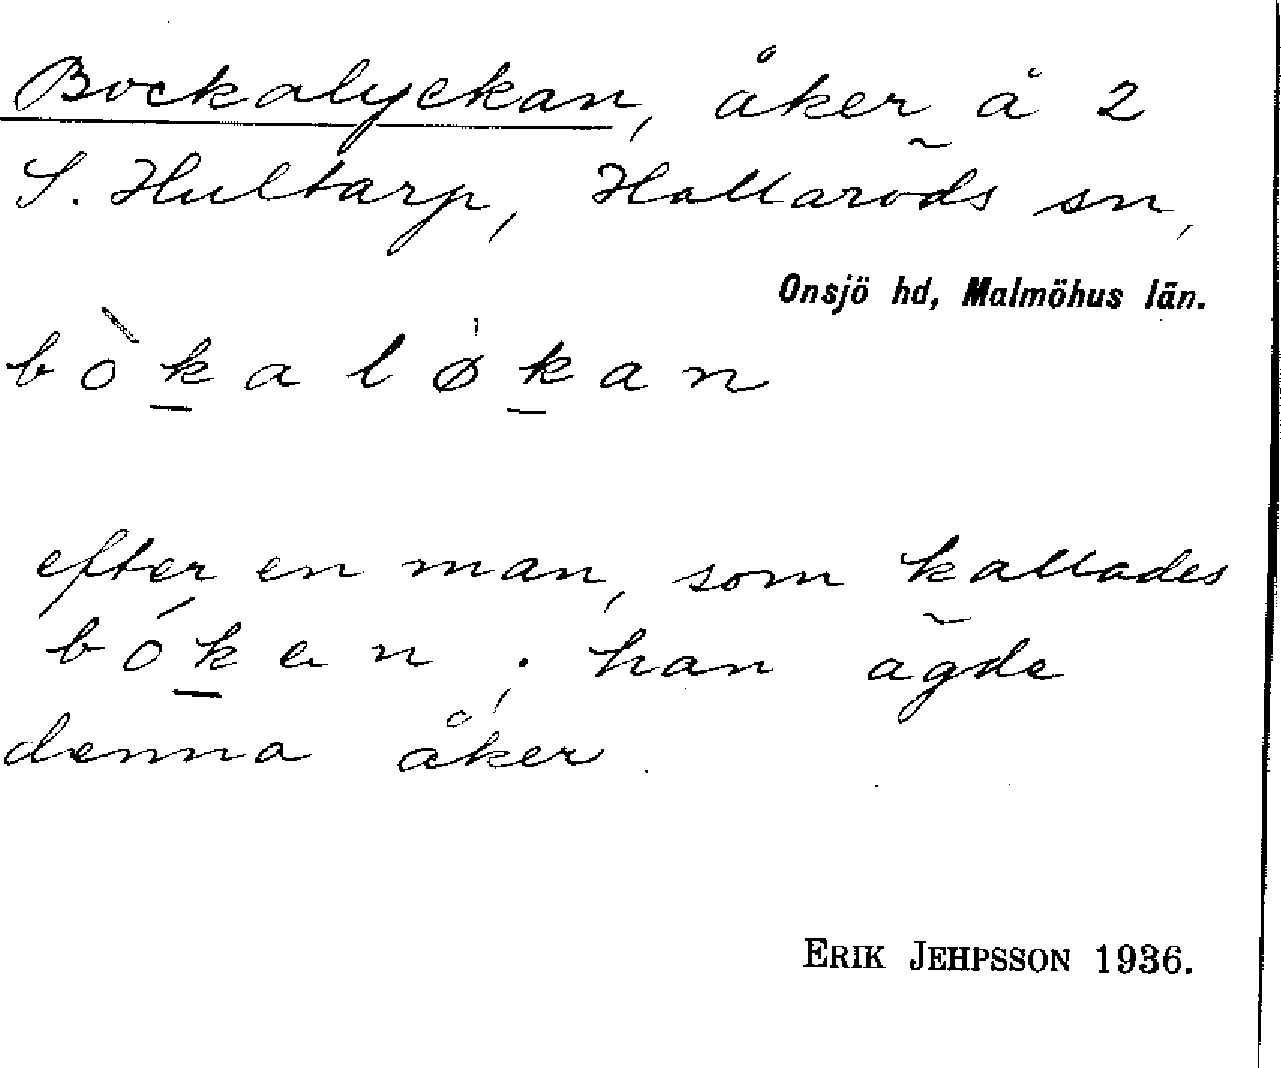 Bockalyckan, åker å 2
S. Hultarp, Hallaröds sn,
Onsjö hd, Malmöhus län.
bòk̲aløk̲an
efter en man, som kallades
bók̲en; han ägde
denna åker.
ERIK JEHPSSON 1936.